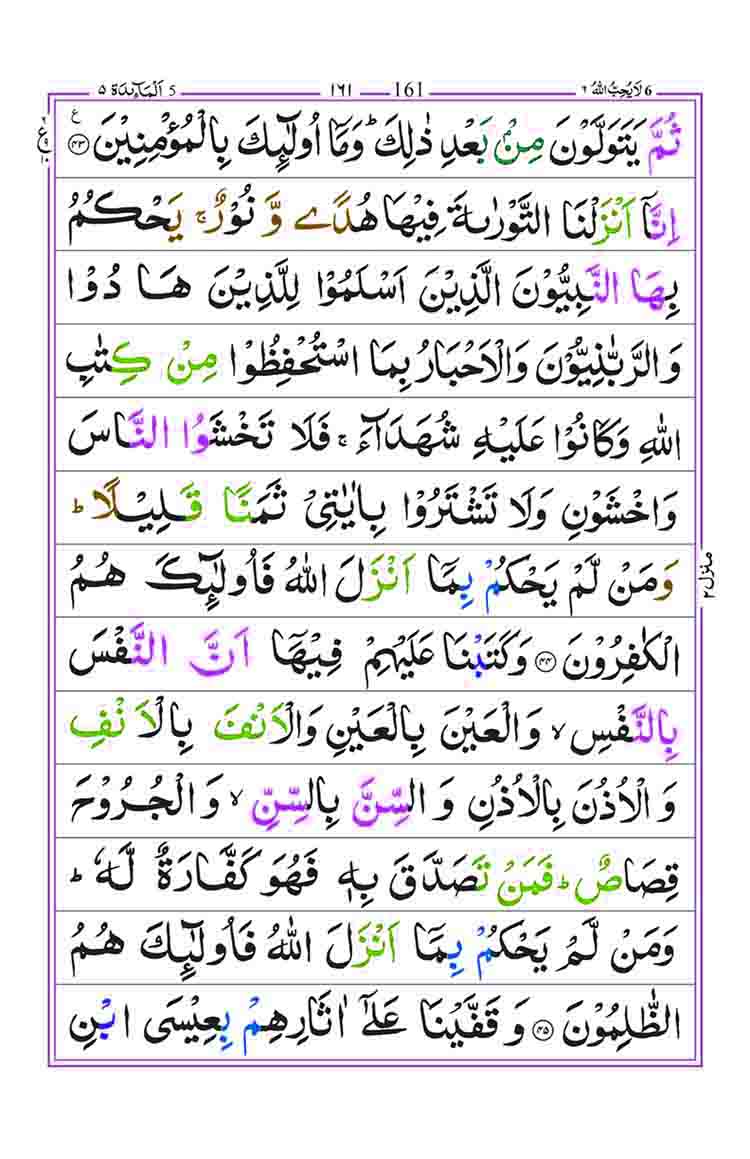 6 لَا يُحِبُّ اللهُ ٦ 161 ١٦١ 5 اَلْمَآئِدَة ٥
ثُمَّ يَتَوَلَّوْنَ مِنْۢ بَعْدِ ذٰلِكَ ؕ وَمَاۤ اُولٰٓئِكَ بِالْمُؤْمِنِيْنَ ﴿۴۳﴾
اِنَّاۤ اَنْزَلْنَا التَّوْرٰىةَ فِيْهَا هُدًى وَّ نُوْرٌ ۚ يَحْكُمُ
بِهَا النَّبِيُّوْنَ الَّذِيْنَ اَسْلَمُوْا لِلَّذِيْنَ هَادُوْا
وَالرَّبّٰنِيُّوْنَ وَالْاَحْبَارُ بِمَا اسْتُحْفِظُوْا مِنْ كِتٰبِ
اللهِ وَكَانُوْا عَلَيْهِ شُهَدَآءَ ۚ فَلَا تَخْشَوُا النَّاسَ
وَاخْشَوْنِ وَلَا تَشْتَرُوْا بِاٰيٰتِيْ ثَمَنًا قَلِيْلًا ؕ
وَمَنْ لَّمْ يَحْكُمْ بِمَاۤ اَنْزَلَ اللهُ فَاُولٰٓئِكَ هُمُ
الْكٰفِرُوْنَ ﴿۴۴﴾ وَكَتَبْنَا عَلَيْهِمْ فِيْهَاۤ اَنَّ النَّفْسَ
بِالنَّفْسِ ۙ وَالْعَيْنَ بِالْعَيْنِ وَالْاَنْفَ بِالْاَنْفِ
وَالْاُذُنَ بِالْاُذُنِ وَالسِّنَّ بِالسِّنِّ ۙ وَالْجُرُوْحَ
قِصَاصٌ ؕ فَمَنْ تَصَدَّقَ بِهٖ فَهُوَ كَفَّارَةٌ لَّهٗ ؕ
وَمَنْ لَّمْ يَحْكُمْ بِمَاۤ اَنْزَلَ اللهُ فَاُولٰٓئِكَ هُمُ
الظّٰلِمُوْنَ ﴿۴۵﴾ وَقَفَّيْنَا عَلٰۤى اٰثَارِهِمْ بِعِيْسَى ابْنِ
منزل ٢